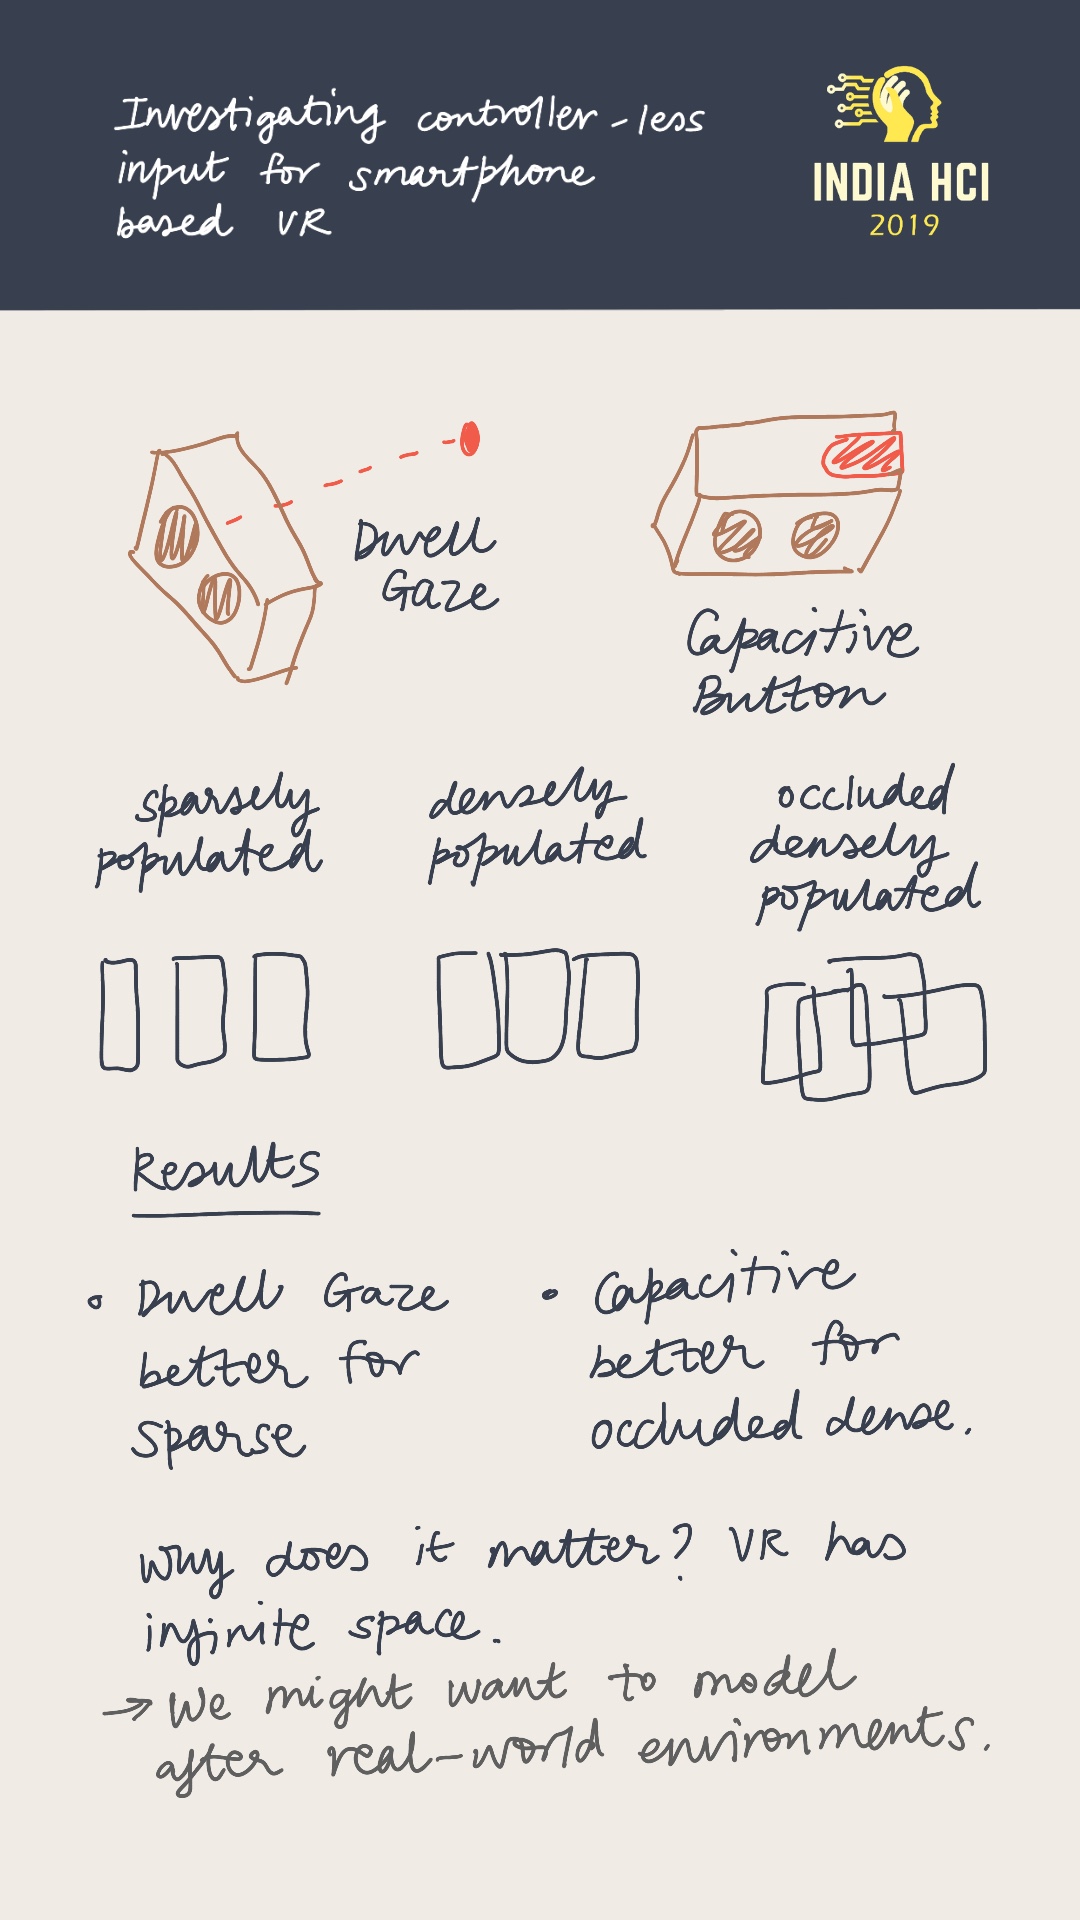 Investigating controller-less
input for smartphone
based VR
INDIA HCI
2019
Dwell
Gaze
Capacitive
Button
sparsely
populated
densely
populated
occluded
densely
populated
Results
• Dwell Gaze
better for
sparse
• Capacitive
better for
occluded dense.
why does it matter? VR has
infinite space.
→ We might want to model
after real-world environments.